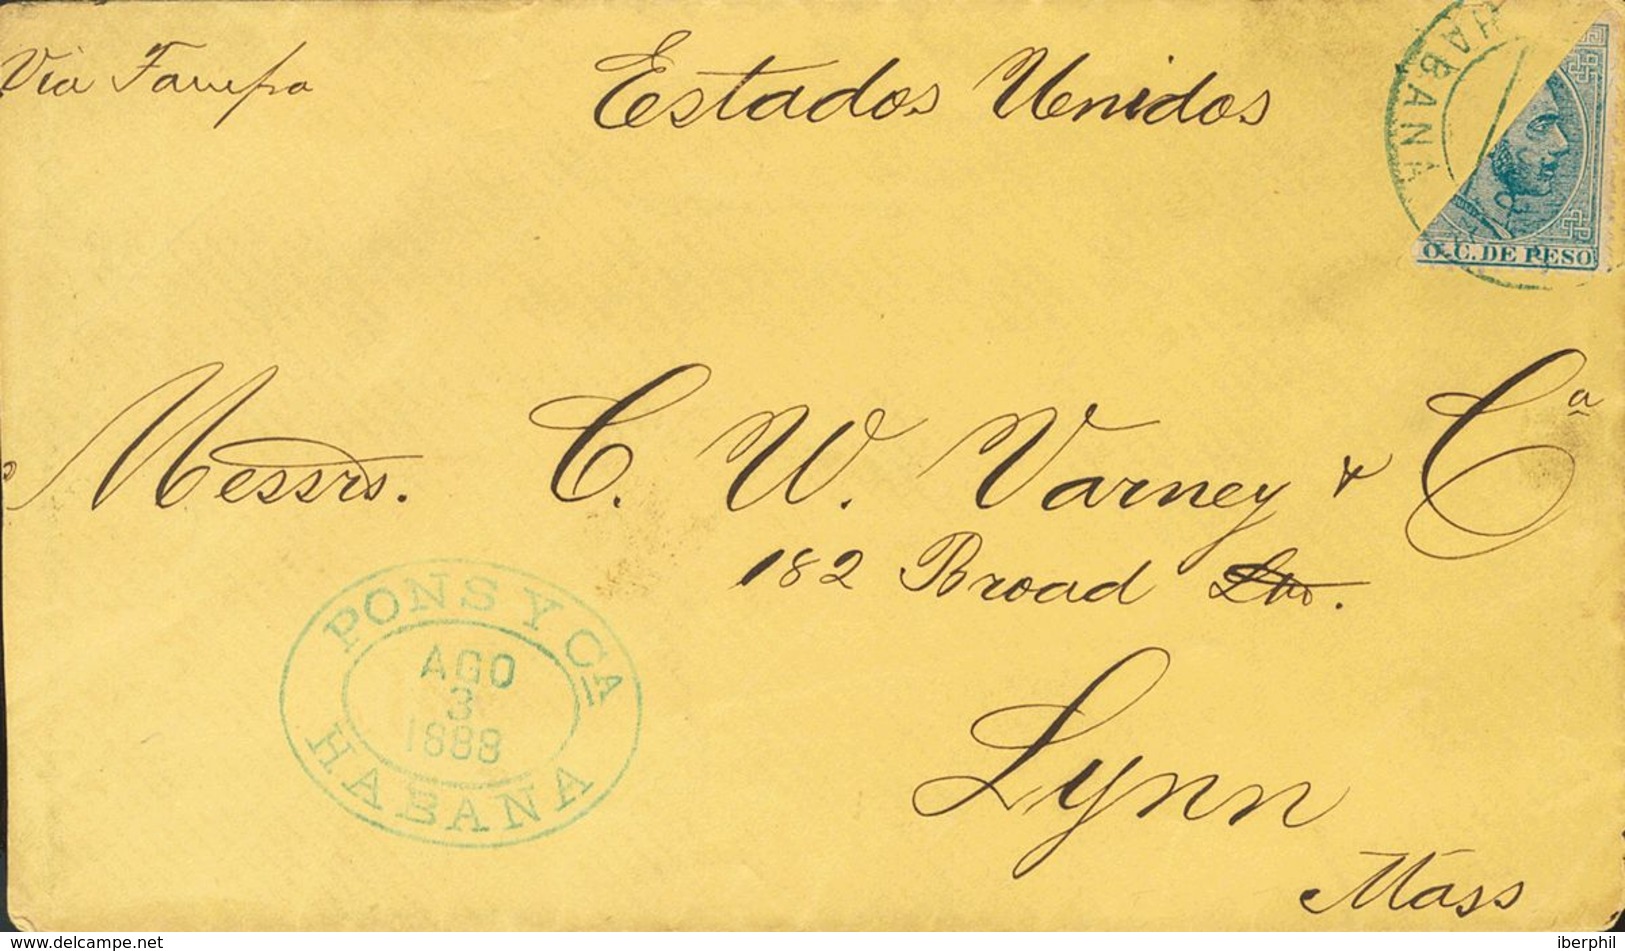 Via Tampa
Estados Unidos
HABANA
O. C. DE PESO
Messrs. C. W. Varney & Cª
182 Broad St.
PONS Y Cª
AGO
3
1888
HABANA
Lynn
Mass
delcampe.net
iberphil